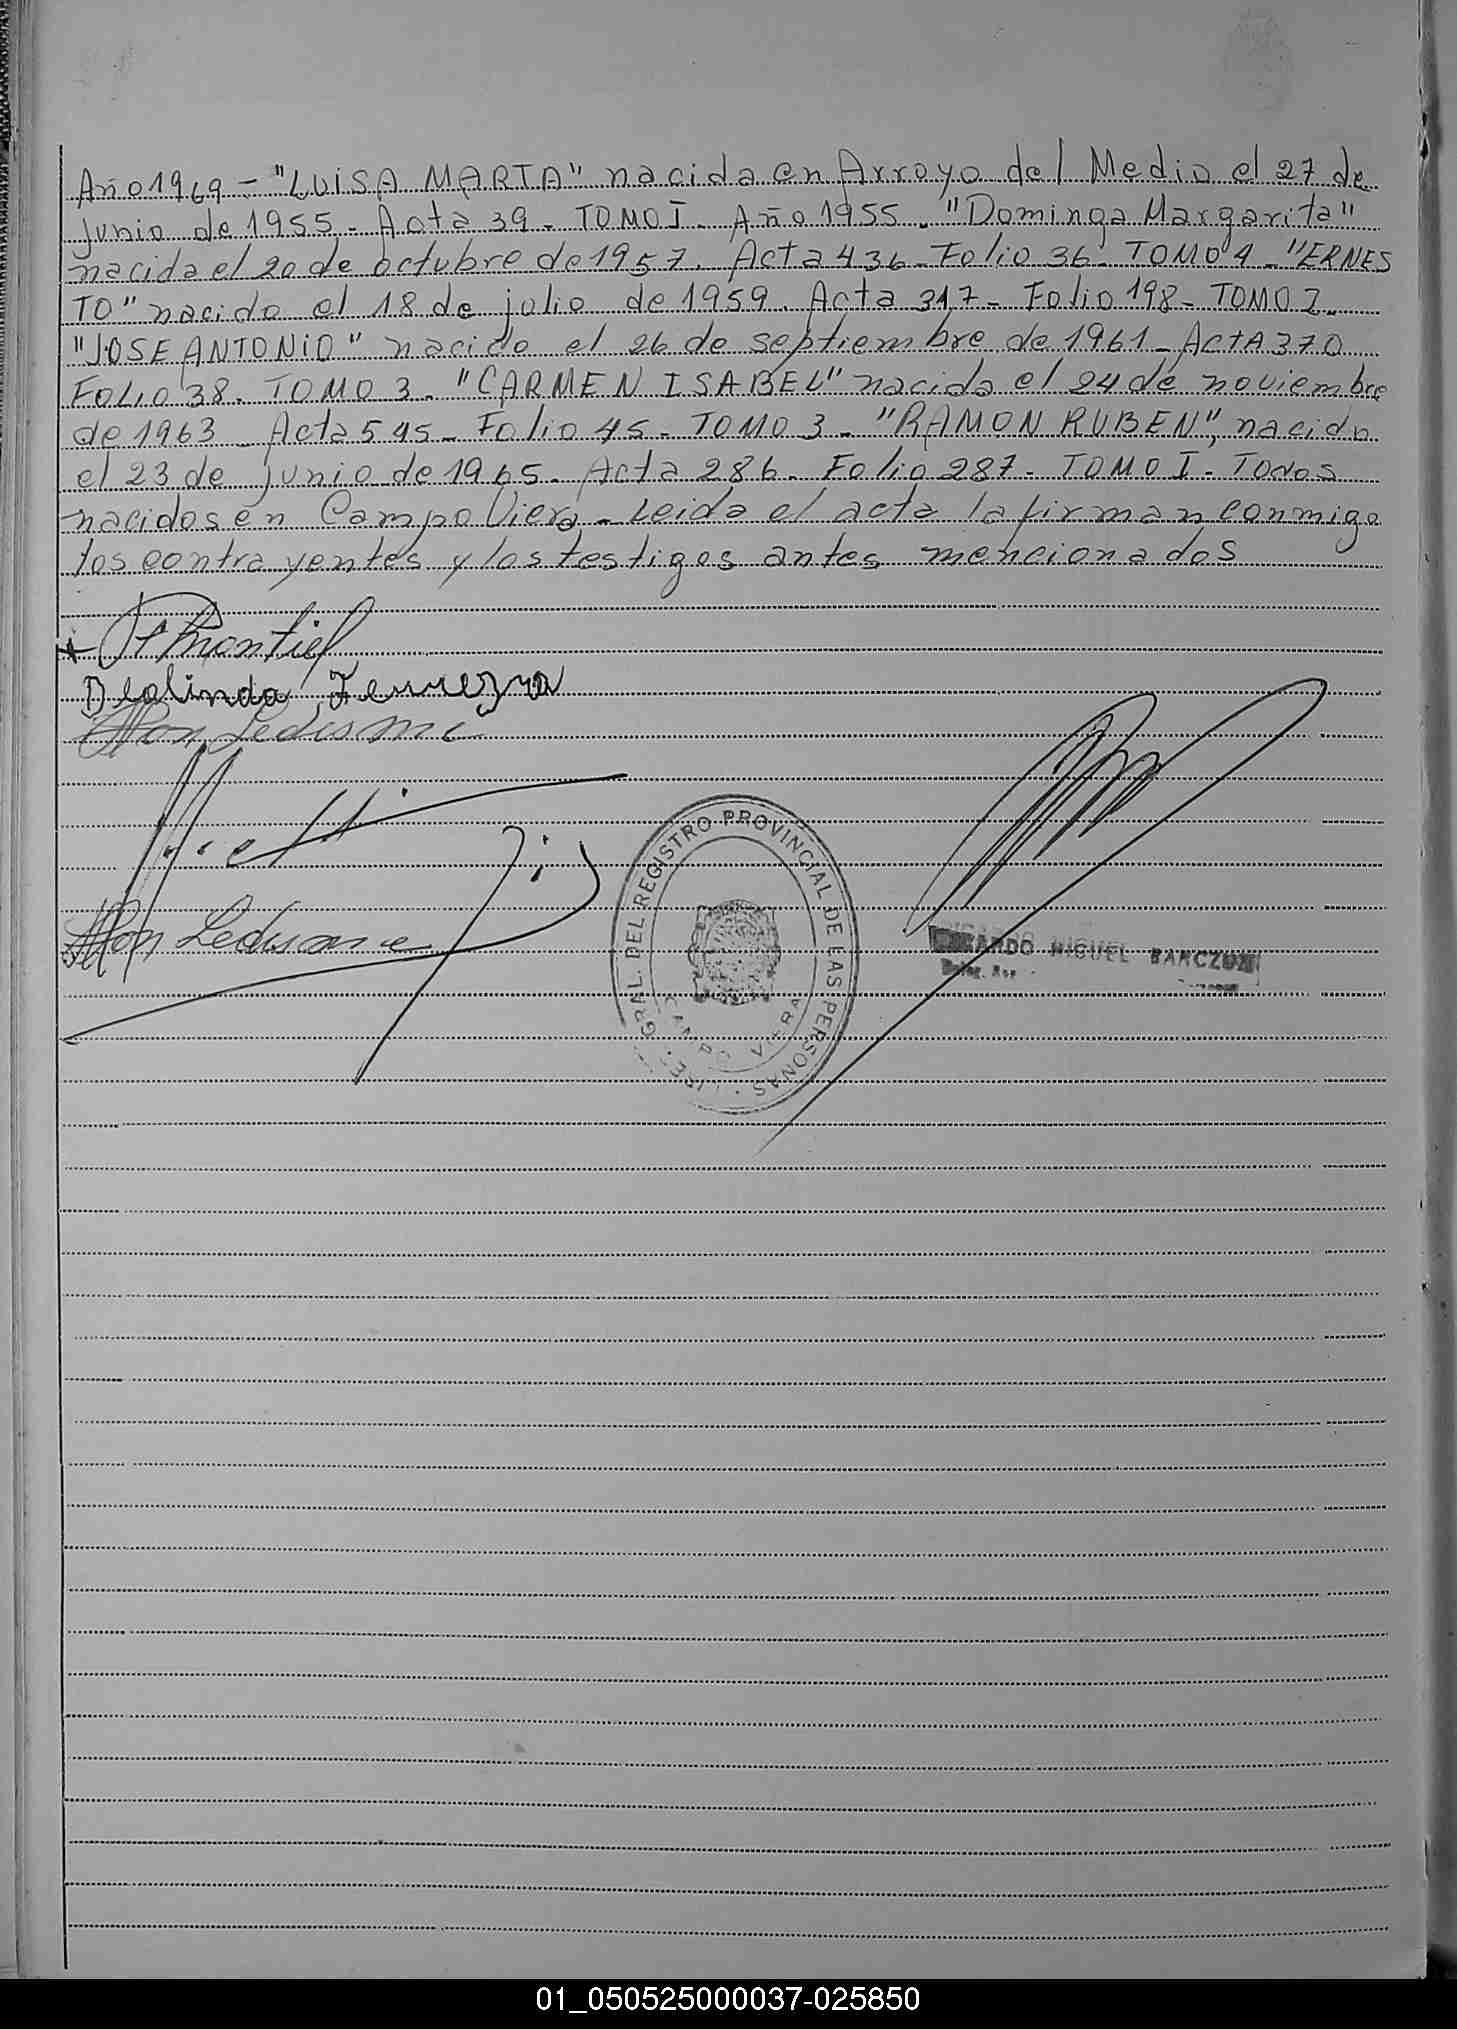 Año 1969 - "LUISA MARTA" nacida en Arroyo del Medio el 27 de
junio de 1955 - Acta 39 - TOMO I - Año 1955 - "Dominga Margarita"
nacida el 20 de octubre de 1957. Acta 436 - Folio 36 - TOMO 4 - "ERNES
TO" nacido el 18 de julio de 1959. Acta 317 - Folio 198 - TOMO 2 -
"JOSE ANTONIO" nacido el 26 de septiembre de 1961 - ActA 370
FOLIO 38. TOMO 3. "CARMEN ISABEL" nacida el 24 de noviembre
de 1963 - Acta 545 - Folio 45 - TOMO 3 - "RAMON RUBEN", nacido
el 23 de junio de 1965. Acta 286. Folio 287 - TOMO I - TOdos
nacidos en Campo Viera - Leida el acta la firman conmigo
los contrayentes y los testigos antes mencionados
Montiel
Deolinda Ferreyra
Ledesma
Ledesma
GRAL. DEL REGISTRO PROVINCIAL DE LAS PERSONAS
CAMPO VIERA
RICARDO MIGUEL BARCZUK
01_050525000037-025850